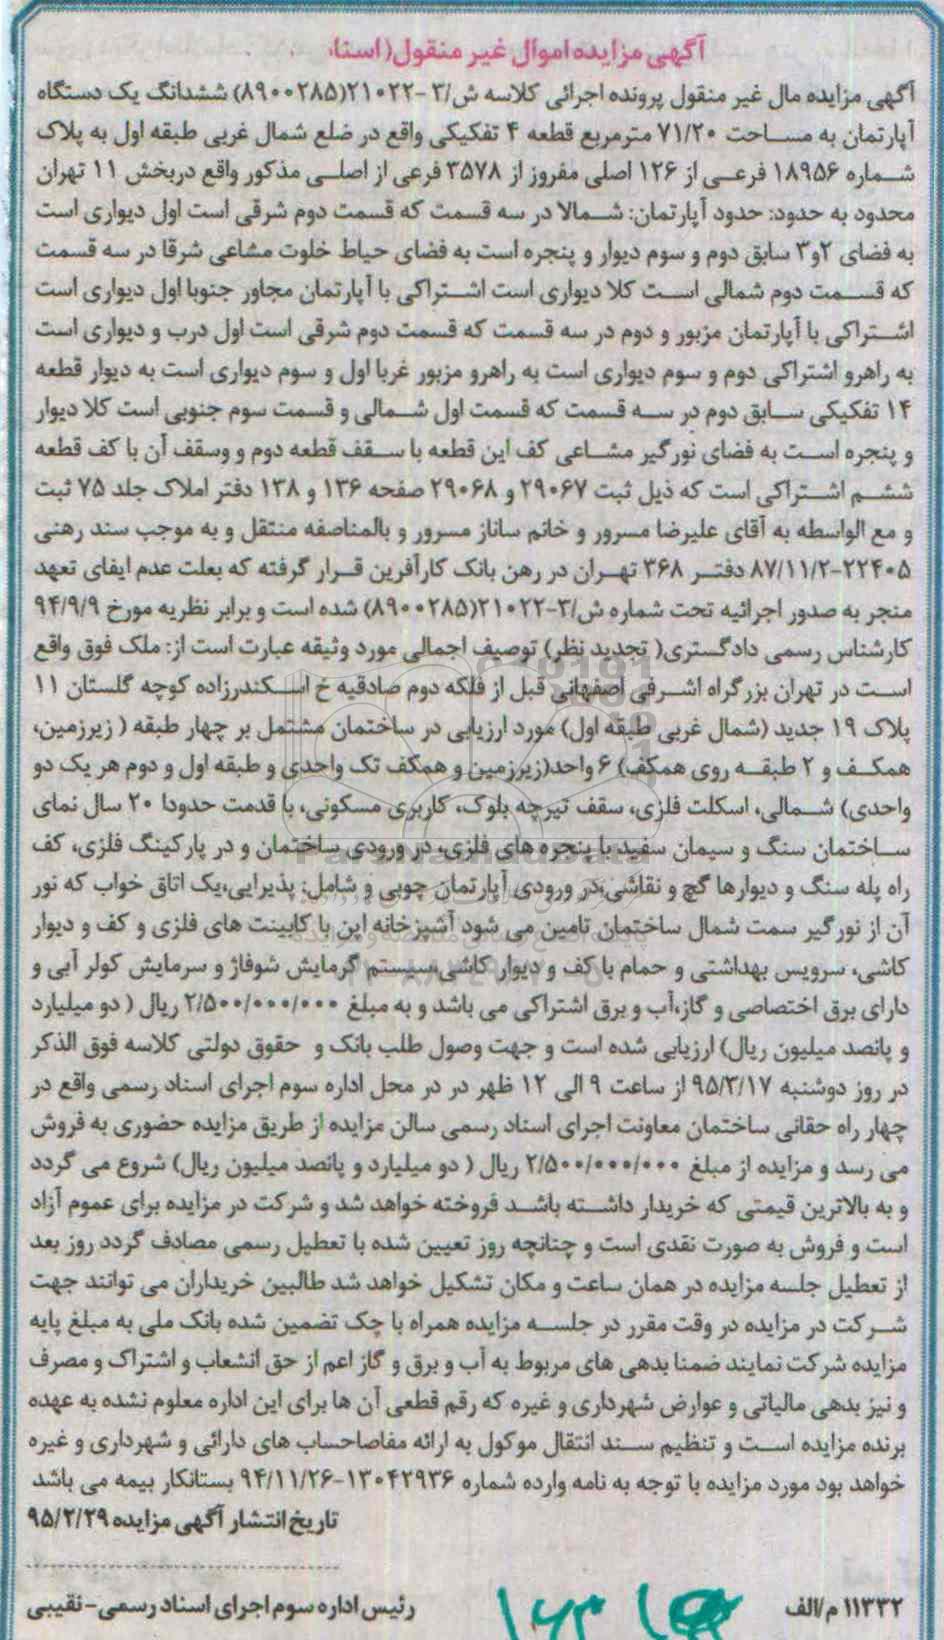 آگهی مزایده اموال غیر منقول (اسنا،
آگهی مزایده مال غیر منقول پرونده اجرائی کلاسه ش/۳ -۲۱۰۲۲(۸۹۰۰۲۸۵) ششدانگ یک دستگاه
آپارتمان به مساحت ۷۱/۲۰ مترمربع قطعه ۴ تفکیکی واقع در ضلع شمال غربی طبقه اول به پلاک
شماره ۱۸۹۵۶ فرعی از ۱۲۶ اصلی مفروز از ۳۵۷۸ فرعی از اصلی مذکور واقع دربخش ۱۱ تهران
محدود به حدود: حدود آپارتمان: شمالا در سه قسمت که قسمت دوم شرقی است اول دیواری است
به فضای ۲و۳ سابق دوم و سوم دیوار و پنجره است به فضای حیاط خلوت مشاعی شرقا در سه قسمت
که قسمت دوم شمالی است کلا دیواری است اشتراکی با آپارتمان مجاور جنوبا اول دیواری است
اشتراکی با آپارتمان مزبور و دوم در سه قسمت که قسمت دوم شرقی است اول درب و دیواری است
به راهرو اشتراکی دوم و سوم دیواری است به راهرو مزبور غربا اول و سوم دیواری است به دیوار قطعه
۱۴ تفکیکی سابق دوم در سه قسمت که قسمت اول شمالی و قسمت سوم جنوبی است کلا دیوار
و پنجره است به فضای نورگیر مشاعی کف این قطعه با سقف قطعه دوم و وسقف آن با کف قطعه
ششم اشتراکی است که ذیل ثبت ۲۹۰۶۷ و ۲۹۰۶۸ صفحه ۱۳۶ و ۱۳۸ دفتر املاک جلد ۷۵ ثبت
و مع الواسطه به آقای علیرضا مسرور و خانم ساناز مسرور و بالمناصفه منتقل و به موجب سند رهنی
۲۲۴۰۵-۸۷/۱۱/۲ دفتر ۳۶۸ تهران در رهن بانک کارآفرین قرار گرفته که بعلت عدم ایفای تعهد
منجر به صدور اجرائیه تحت شماره ش/۳-۲۱۰۲۲(۸۹۰۰۲۸۵) شده است و برابر نظریه مورخ ۹۴/۹/۹
کارشناس رسمی دادگستری( تجدید نظر) توصیف اجمالی مورد وثیقه عبارت است از: ملک فوق واقع
است در تهران بزرگراه اشرفی اصفهانی قبل از فلکه دوم صادقیه خ اسکندرزاده کوچه گلستان ۱۱
پلاک ۱۹ جدید (شمال غربی طبقه اول) مورد ارزیابی در ساختمان مشتمل بر چهار طبقه ( زیرزمین،
همکف و ۲ طبقه روی همکف) ۶ واحد(زیرزمین و همکف تک واحدی و طبقه اول و دوم هر یک دو
واحدی) شمالی، اسکلت فلزی، سقف تیرچه بلوک، کاربری مسکونی، با قدمت حدودا ۲۰ سال نمای
ساختمان سنگ و سیمان سفید با پنجره های فلزی، در ورودی ساختمان و در پارکینگ فلزی، کف
راه پله سنگ و دیوارها گچ و نقاشی،در ورودی آپارتمان چوبی و شامل: پذیرایی،یک اتاق خواب که نور
آن از نورگیر سمت شمال ساختمان تامین می شود آشپزخانه اپن با کابینت های فلزی و کف و دیوار
کاشی، سرویس بهداشتی و حمام با کف و دیوار کاشی،سیستم گرمایش شوفاژ و سرمایش کولر آبی و
دارای برق اختصاصی و گاز،آب و برق اشتراکی می باشد و به مبلغ ۲/۵۰۰/۰۰۰/۰۰۰ ریال ( دو میلیارد
و پانصد میلیون ریال) ارزیابی شده است و جهت وصول طلب بانک و حقوق دولتی کلاسه فوق الذکر
در روز دوشنبه ۹۵/۳/۱۷ از ساعت ۹ الی ۱۲ ظهر در در محل اداره سوم اجرای اسناد رسمی واقع در
چهار راه حقانی ساختمان معاونت اجرای اسناد رسمی سالن مزایده از طریق مزایده حضوری به فروش
می رسد و مزایده از مبلغ ۲/۵۰۰/۰۰۰/۰۰۰ ریال ( دو میلیارد و پانصد میلیون ریال) شروع می گردد
و به بالاترین قیمتی که خریدار داشته باشد فروخته خواهد شد و شرکت در مزایده برای عموم آزاد
است و فروش به صورت نقدی است و چنانچه روز تعیین شده با تعطیل رسمی مصادف گردد روز بعد
از تعطیل جلسه مزایده در همان ساعت و مکان تشکیل خواهد شد طالبین خریداران می توانند جهت
شرکت در مزایده در وقت مقرر در جلسه مزایده همراه با چک تضمین شده بانک ملی به مبلغ پایه
مزایده شرکت نمایند ضمنا بدهی های مربوط به آب و برق و گاز اعم از حق انشعاب و اشتراک و مصرف
و نیز بدهی مالیاتی و عوارض شهرداری و غیره که رقم قطعی آن ها برای این اداره معلوم نشده به عهده
برنده مزایده است و تنظیم سند انتقال موکول به ارائه مفاصاحساب های دارائی و شهرداری و غیره
خواهد بود مورد مزایده با توجه به نامه وارده شماره ۱۳۰۴۲۹۳۶-۹۴/۱۱/۲۶ بستانکار بیمه می باشد
تاریخ انتشار آگهی مزایده ۹۵/۲/۲۹
۱۱۳۳۲ م/الف
رئیس اداره سوم اجرای اسناد رسمی-نقیبی